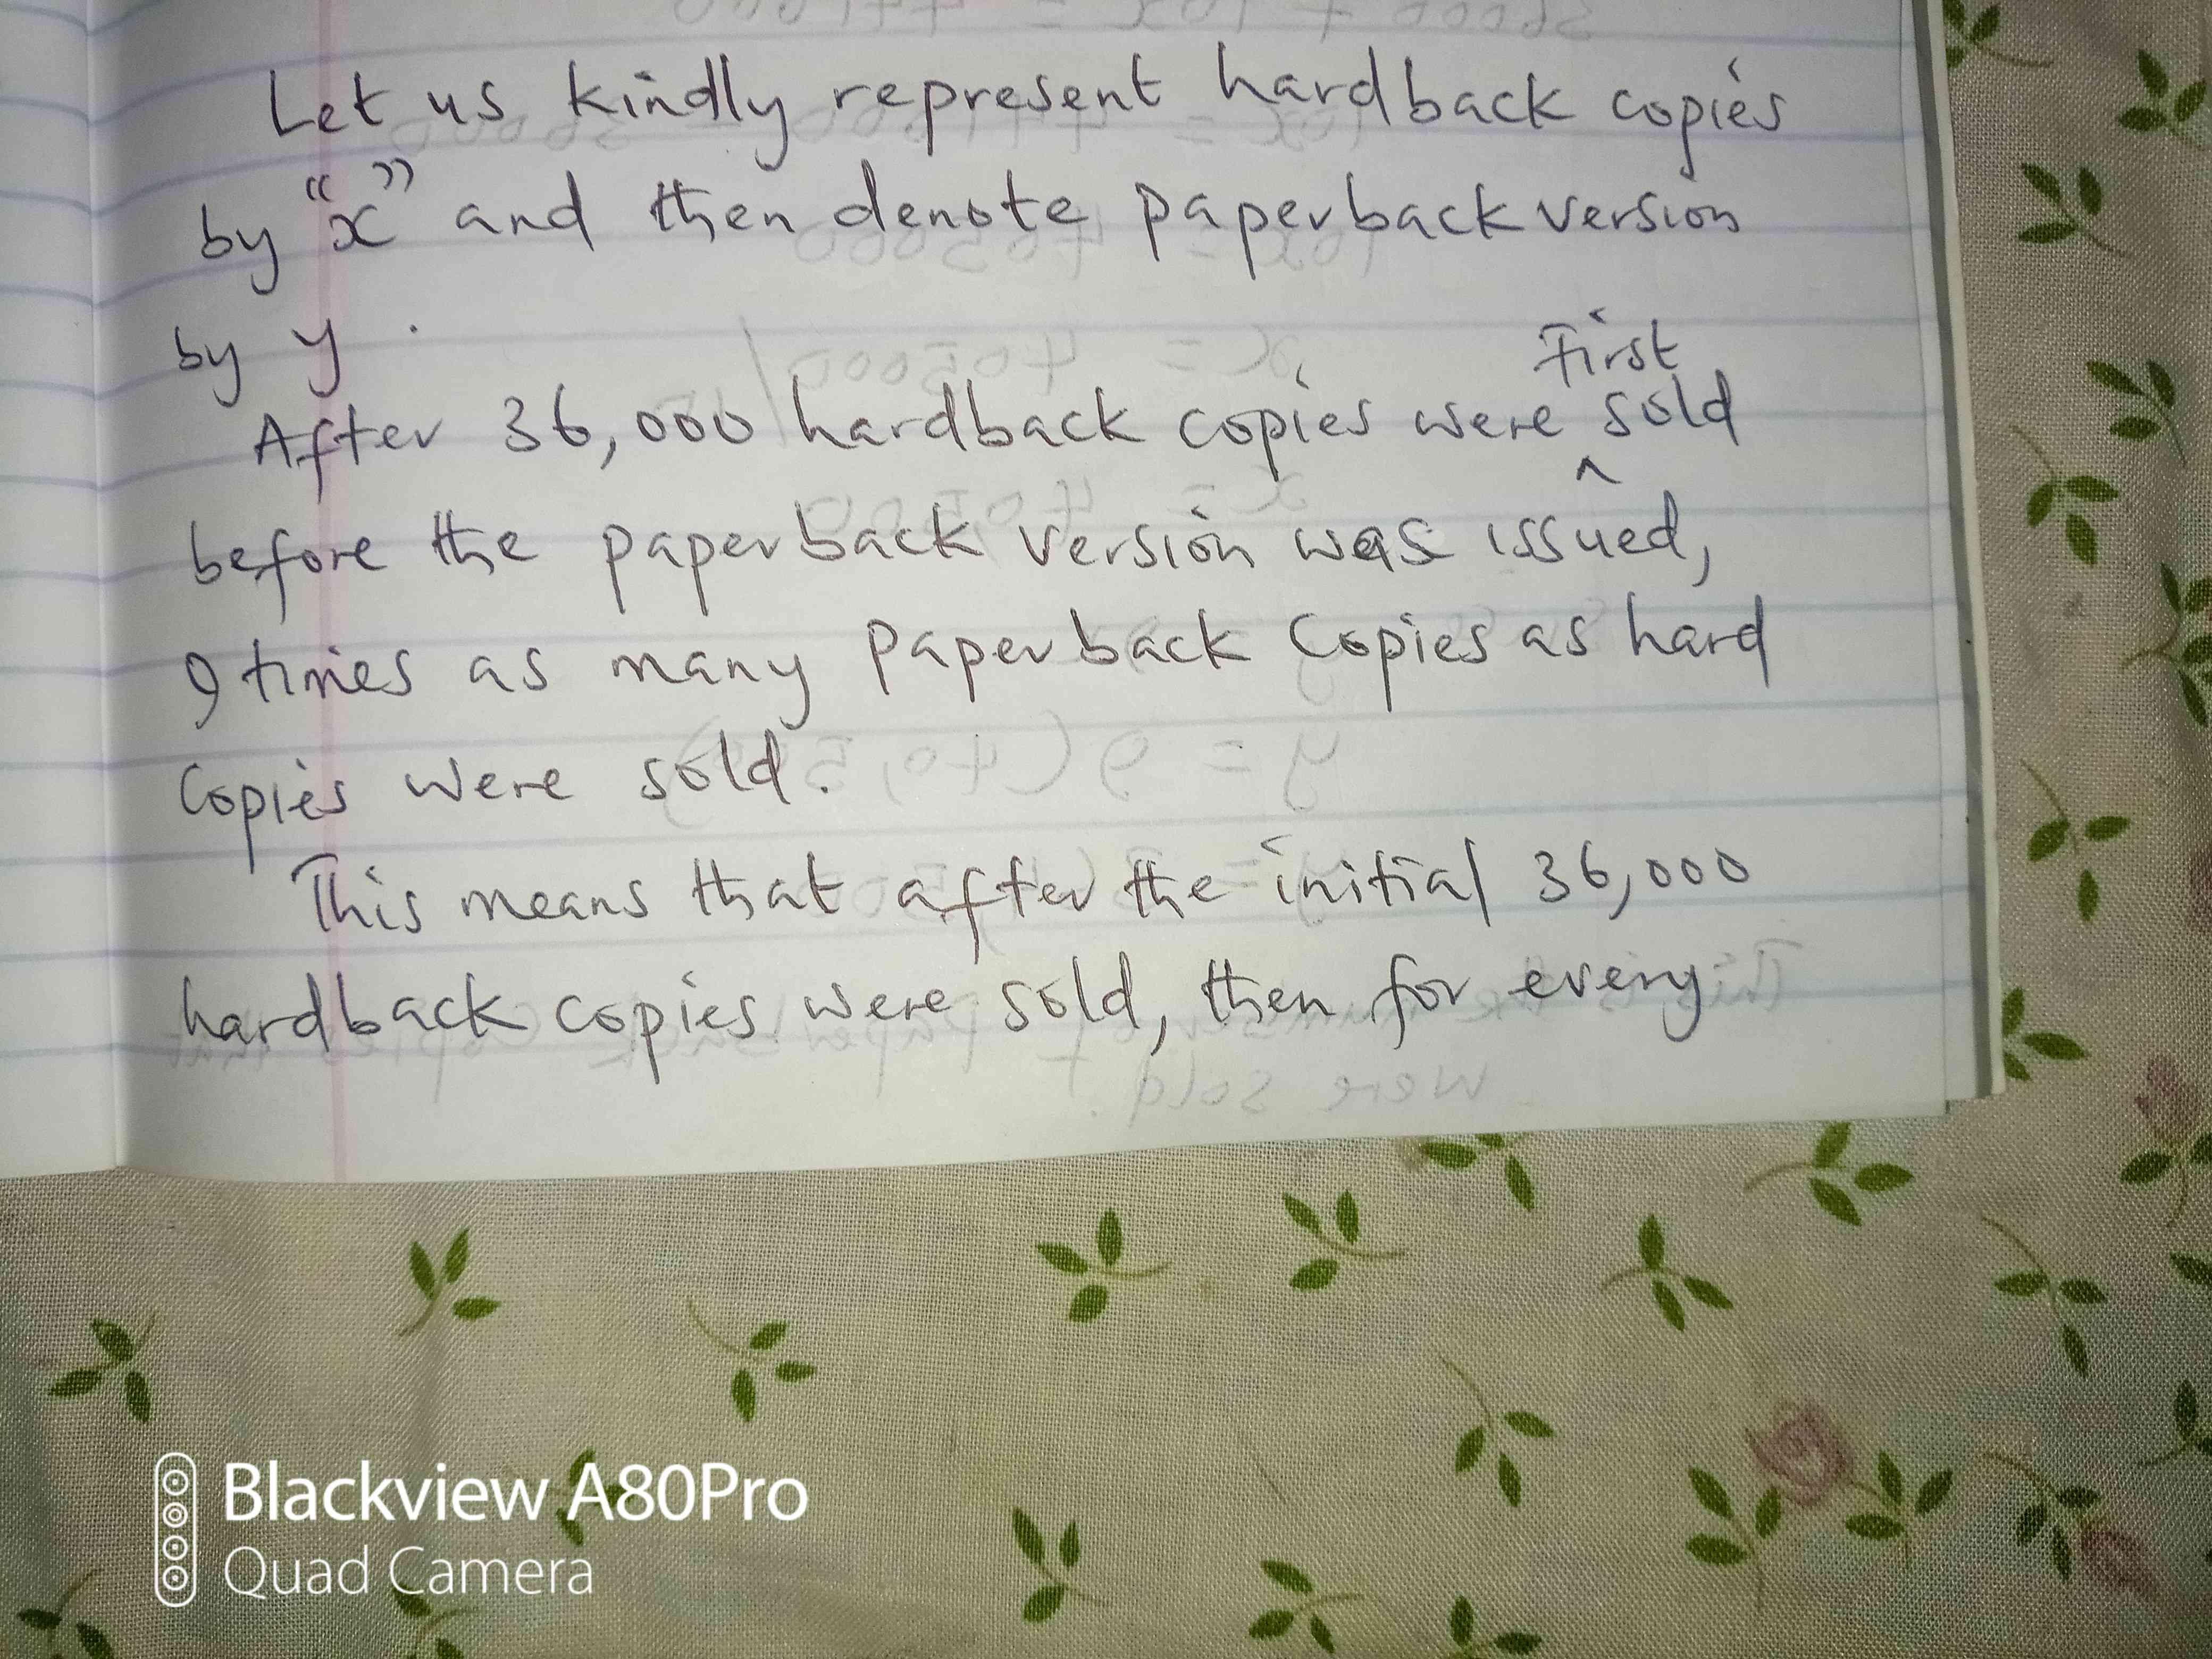 Let us kindly represent hardback copies
by "x" and then denote paperback version
by y.
First
After 36,000 hardback copies were ^ sold
before the paperback version was issued,
9 times as many paperback copies as hard
copies were sold.
This means that after the initial 36,000
hardback copies were sold, then for every
Blackview A80Pro
Quad Camera